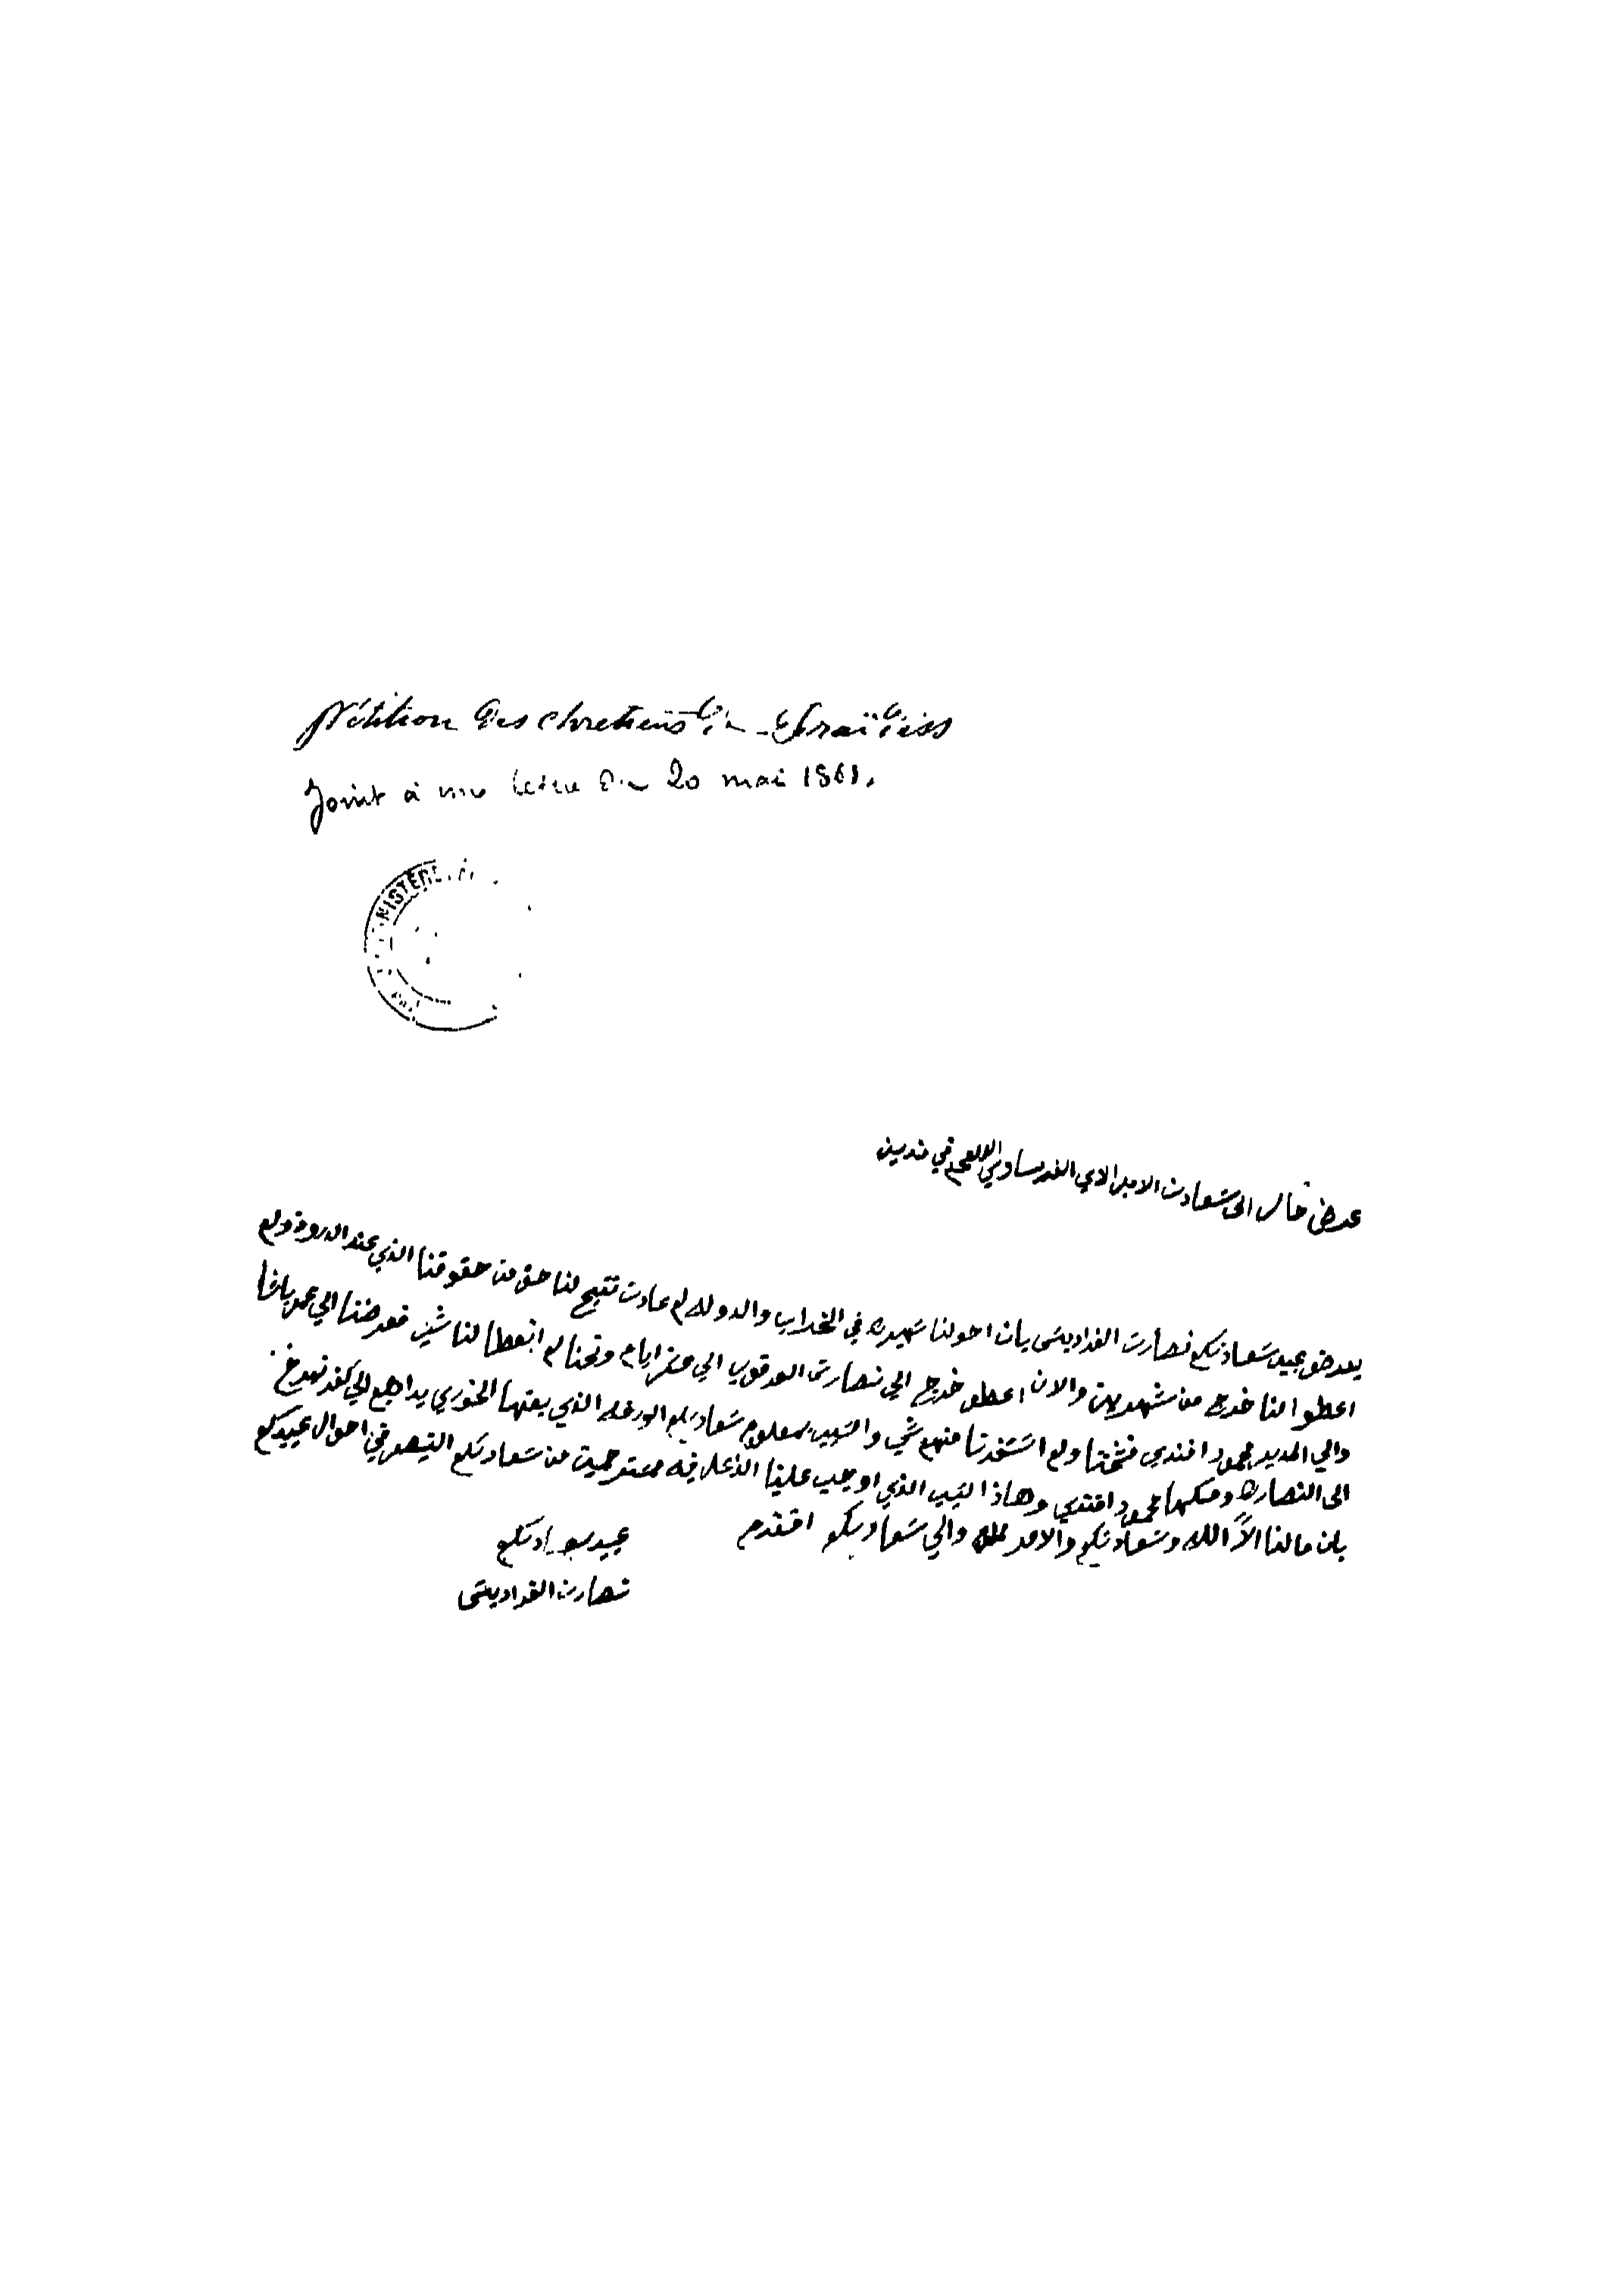 Pétition des chretiens de Fraïdiss
Joint à ma lettre du 20 mai 1861.
NISTÈRE
عرض حال الى سعادت الامير الاي الفرنساوي الافخم في قديين
يعرضو عبيد سعادتكم نصارت الفراديس بان احولنا شهيره في الخراب والدوله لم عادت تتبح لنا حق من حقوقنا الذي عند الدروز ولم
اعطو النا خرج من شهرين والان اعطو خرج الى نصارت العرقوب الي عشر ايام ونحنا لم انعطا لنا شي فعرضنا الي عمر باشا
والي المدير محمود افندي فشحتنا ولم استفدنا منهم شي والسبب معلوم سعادتكم الورقه الذي بعتها الخوري يراجع الى كفر نبرخ
الى النصاره ومسكها محمود افندي وهاذا السبب الذي اوجب علينا الزعل فيه مسترحمين من سعادتكم التبصر في احوال عبيدكم
بان مالنا الا الله وسعادتكم والامر لله والي سعادتكم افندم
عبيد سعادتكم
نصارت الفراديس